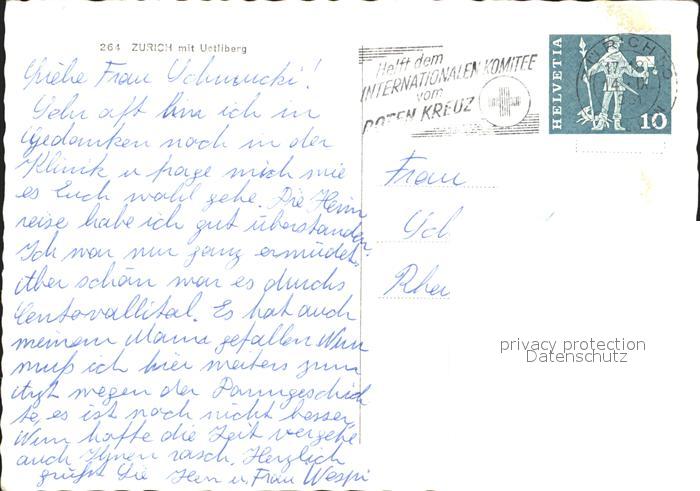 264 ZURICH mit Uetliberg
Liebe Frau Schmucki!
Sehr oft bin ich in
Gedanken noch in der
Klinik u frage mich wie
es Euch wohl gehe. Die Heim
reise habe ich gut überstanden.
Ich war nur ganz ermüdet,
Aber schön war es durchs
Centovallital. Es hat auch
meinem Mann gefallen. Nun
muß ich hier weiters zum
Arzt wegen der Darmgeschich
te, es ist noch nicht besser,
Nun hoffe die Zeit vergehe
auch Ihnen rasch. Herzlich
grüßt Sie Herr u. Frau Wespi
Helft dem
INTERNATIONALEN KOMITEE
vom
ROTEN KREUZ
HELVETIA
10
Frau
Sch
Rhei
privacy protection
Datenschutz